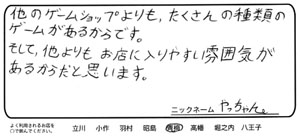 他のゲームショップよりも、たくさんの種類の
ゲームがあるからです。
そして、他よりもお店に入りやすい雰囲気が
あるからだと思います。
ニックネーム やっちゃん。
よく利用されるお店を
○で囲んでください。
立川 小作 羽村 昭島 高幡 堀之内 八王子